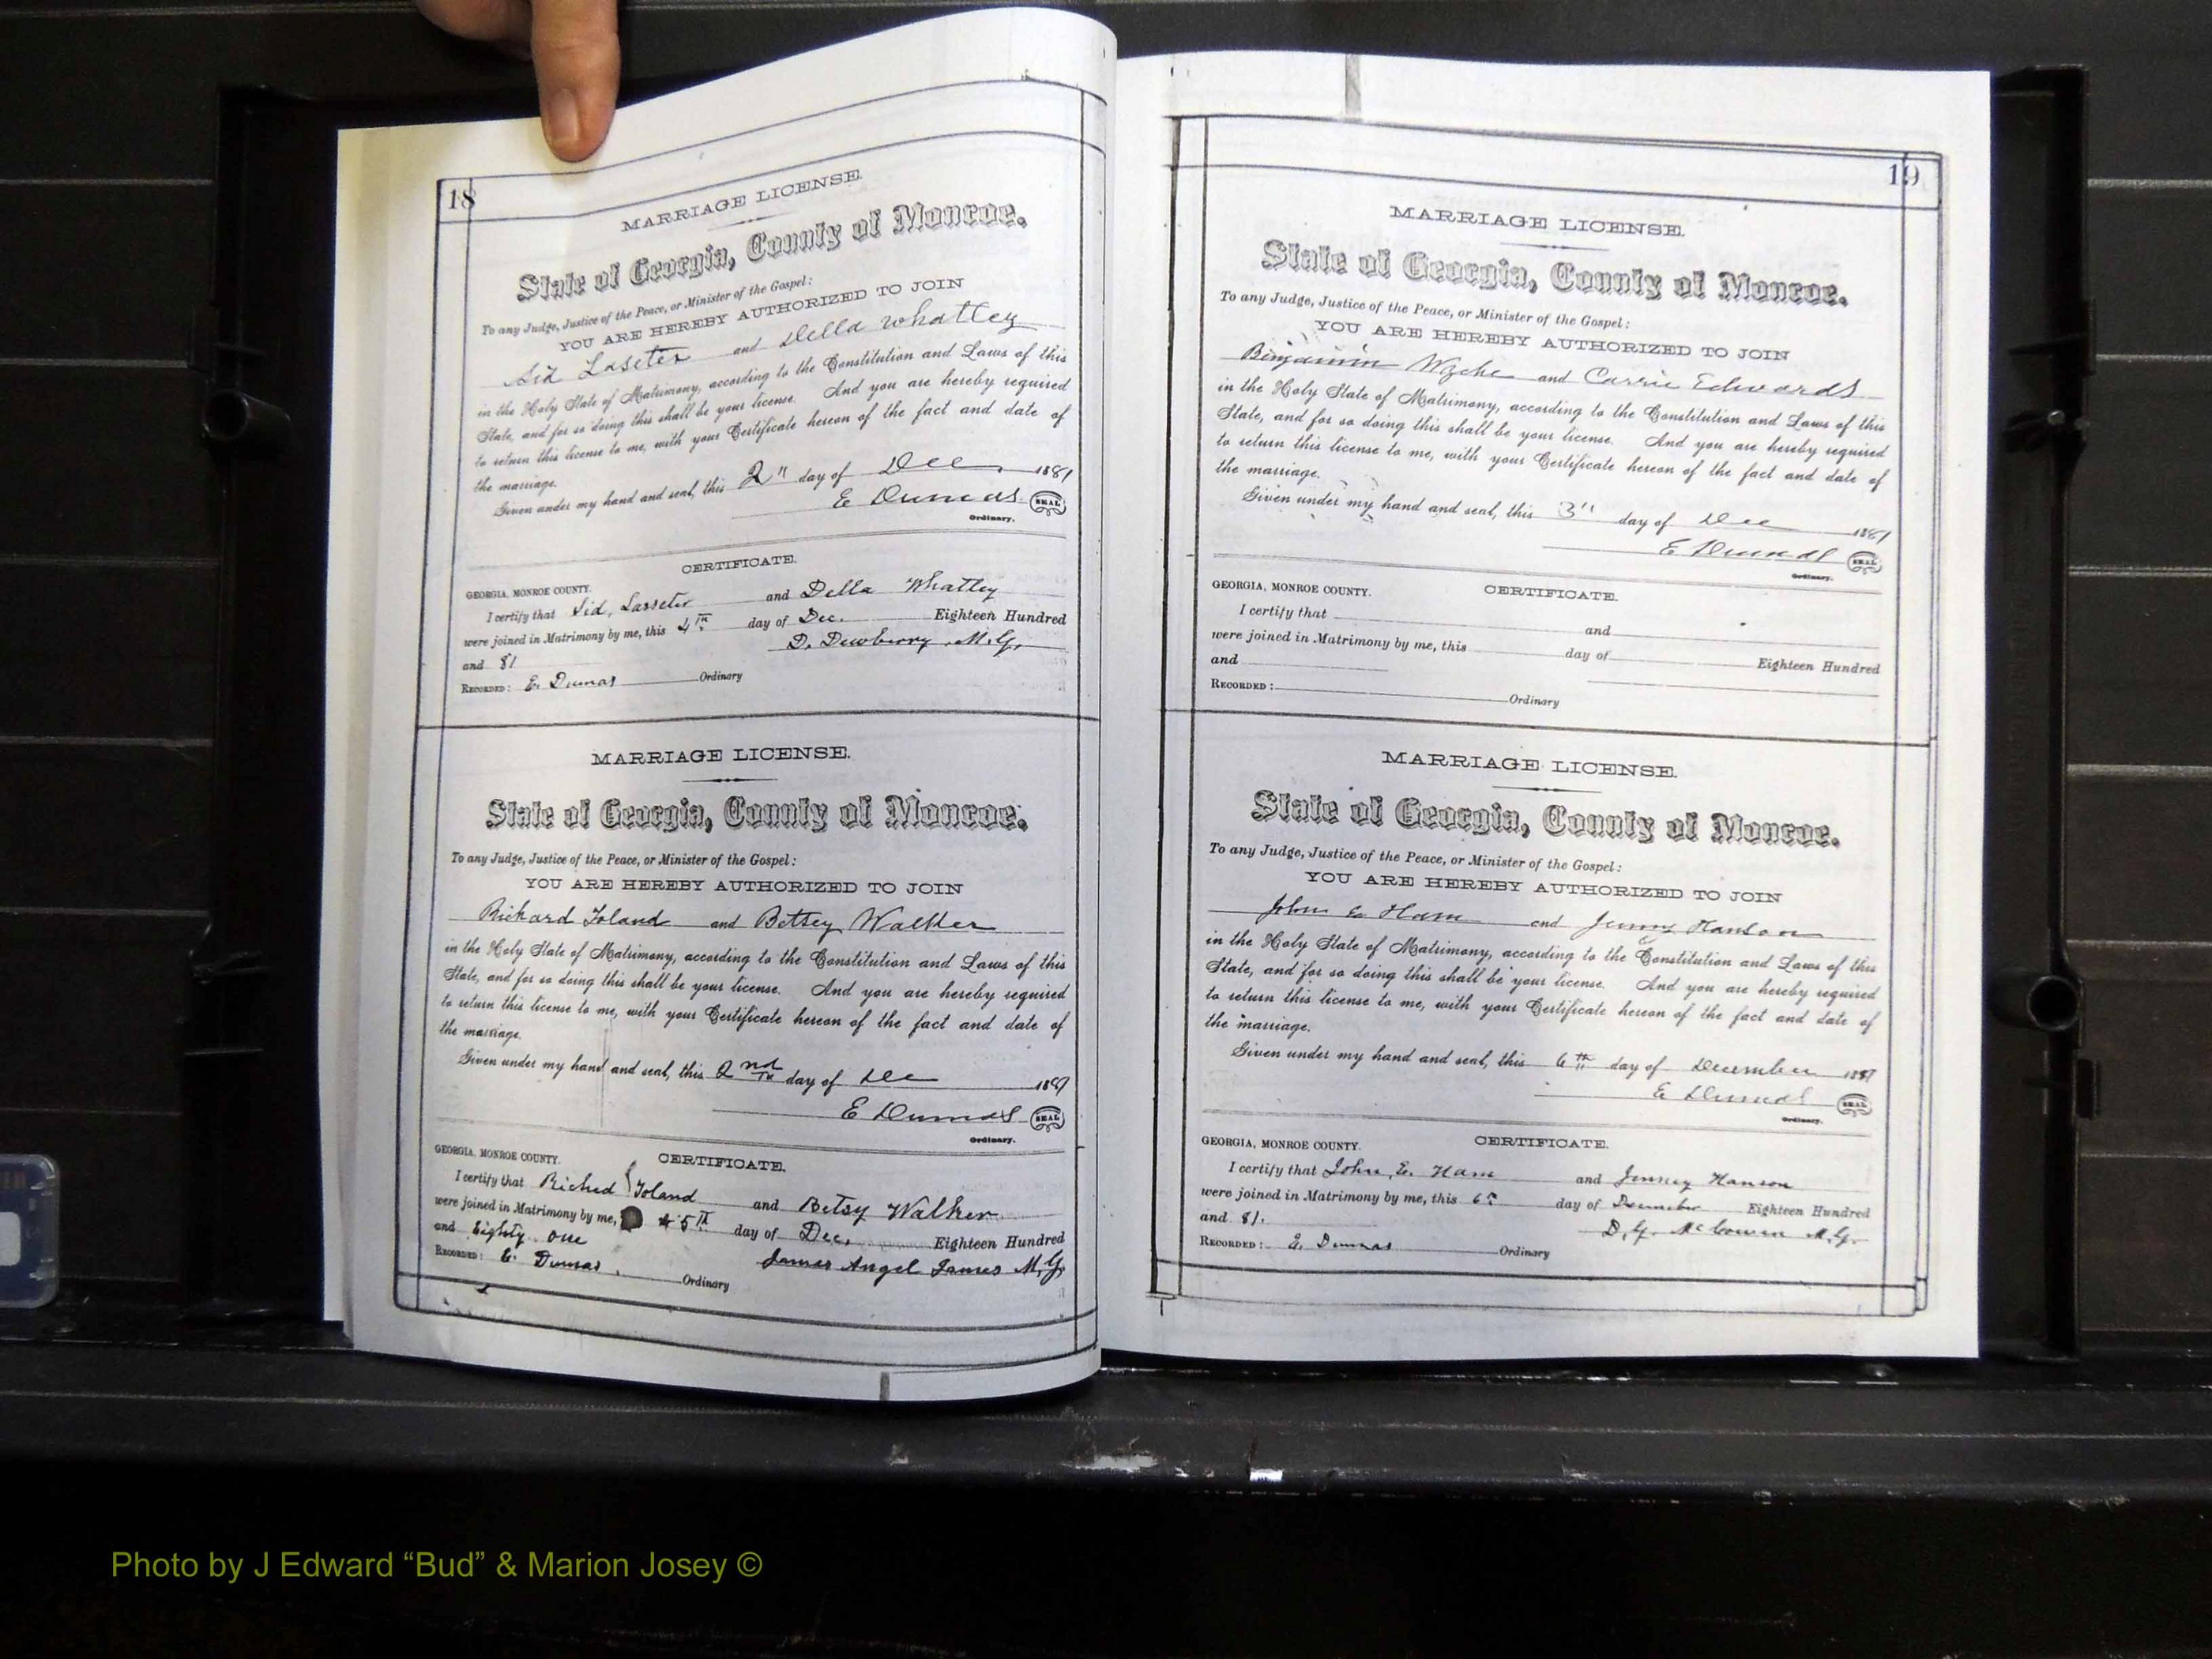 18
MARRIAGE LICENSE.
State of Georgia, County of Monroe.
To any Judge, Justice of the Peace, or Minister of the Gospel:
YOU ARE HEREBY AUTHORIZED TO JOIN
Sid Laseter and Della Whatley
in the Holy State of Matrimony, according to the Constitution and Laws of this
State, and for so doing this shall be your license. And you are hereby required
to return this license to me, with your Certificate hereon of the fact and date of
the marriage.
Given under my hand and seal, this 2" day of Dec 1881
E Dumas SEAL
Ordinary.
CERTIFICATE.
GEORGIA, MONROE COUNTY.
I certify that Sid, Lasseter and Della Whatley
were joined in Matrimony by me, this 4th day of Dec. Eighteen Hundred
and 81 D. Dewberry, M.G.
RECORDED: E. Dumas Ordinary
MARRIAGE LICENSE.
State of Georgia, County of Monroe.
To any Judge, Justice of the Peace, or Minister of the Gospel:
YOU ARE HEREBY AUTHORIZED TO JOIN
Richard Toland and Bettsey Walker
in the Holy State of Matrimony, according to the Constitution and Laws of this
State, and for so doing this shall be your license. And you are hereby required
to return this license to me, with your Certificate hereon of the fact and date of
the marriage.
Given under my hand and seal, this 2nd day of Dec 1881
E Dumas SEAL
Ordinary.
GEORGIA, MONROE COUNTY. CERTIFICATE.
I certify that Riched Toland and Betsy Walker
were joined in Matrimony by me, 5th day of Dec. Eighteen Hundred
and Eighty one James Angel James M,G,
RECORDED: E. Dumas. Ordinary
19
MARRIAGE LICENSE.
State of Georgia, County of Monroe.
To any Judge, Justice of the Peace, or Minister of the Gospel:
YOU ARE HEREBY AUTHORIZED TO JOIN
Binjamin Wyche and Carrie Edwards
in the Holy State of Matrimony, according to the Constitution and Laws of this
State, and for so doing this shall be your license. And you are hereby required
to return this license to me, with your Certificate hereon of the fact and date of
the marriage.
Given under my hand and seal, this 3" day of Dec 1881
E Dumas SEAL
Ordinary.
GEORGIA, MONROE COUNTY. CERTIFICATE.
I certify that and
were joined in Matrimony by me, this day of Eighteen Hundred
and
RECORDED: Ordinary
MARRIAGE LICENSE.
State of Georgia, County of Monroe.
To any Judge, Justice of the Peace, or Minister of the Gospel:
YOU ARE HEREBY AUTHORIZED TO JOIN
John E Ham and Jenny Hanson
in the Holy State of Matrimony, according to the Constitution and Laws of this
State, and for so doing this shall be your license. And you are hereby required
to return this license to me, with your Certificate hereon of the fact and date of
the marriage.
Given under my hand and seal, this 6th day of December 1881
E Dumas SEAL
Ordinary.
GEORGIA, MONROE COUNTY. CERTIFICATE.
I certify that John, E. Ham and Jenney Hanson
were joined in Matrimony by me, this 6th day of December Eighteen Hundred
and 81. D. G. McCowen M.G.
RECORDED: E. Dumas Ordinary
Photo by J Edward “Bud” & Marion Josey ©